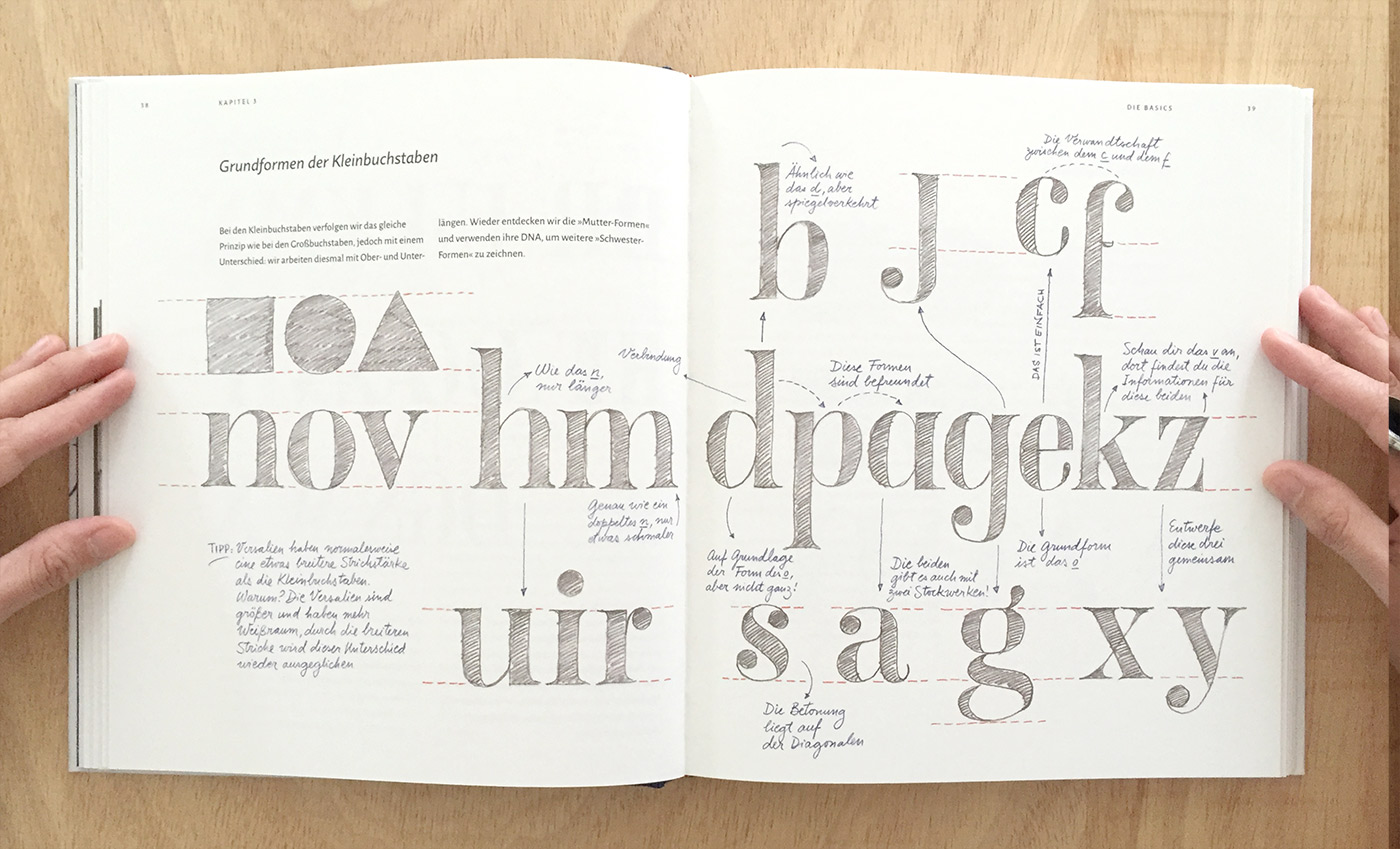 38
KAPITEL 3
Grundformen der Kleinbuchstaben
Bei den Kleinbuchstaben verfolgen wir das gleiche
Prinzip wie bei den Großbuchstaben, jedoch mit einem
Unterschied: wir arbeiten diesmal mit Ober- und Unter-
längen. Wieder entdecken wir die »Mutter-Formen«
und verwenden ihre DNA, um weitere »Schwester-
Formen« zu zeichnen.
nov
hm
Wie das n,
nur länger
Verbindung
Genau wie ein
doppeltes n, nur
etwas schmaler
TIPP: Versalien haben normalerweise
eine etwas breitere Strichstärke
als die Kleinbuchstaben.
Warum? Die Versalien sind
größer und haben mehr
Weißraum, durch die breiteren
Striche wird dieser Unterschied
wieder ausgeglichen
uir
DIE BASICS
39
b
Ähnlich wie
das d, aber
spiegelverkehrt
J
Die Verwandtschaft
zwischen dem c und dem f
cf
DAS IST EINFACH
Diese Formen
sind befreundet
Schau dir das v an,
dort findest du die
Informationen für
diese beiden
dpagekz
Auf Grundlage
der Form des o,
aber nicht ganz!
Die beiden
gibt es auch mit
zwei Stockwerken!
Die Grundform
ist das o
Entwerfe
diese drei
gemeinsam
s a g xy
Die Betonung
liegt auf
der Diagonalen